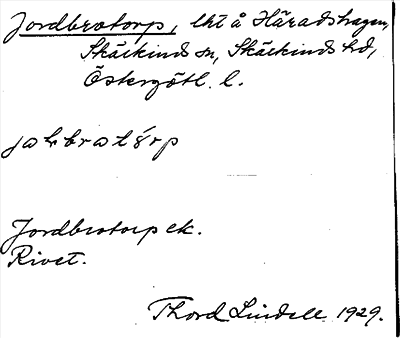 Jordbrotorp, lht å Häradshagen,
Skärkinds sn, Skärkinds hd,
Östergötl. l.
Jordbrotorp ek.
Rivet.
Thord Lindell 1929.